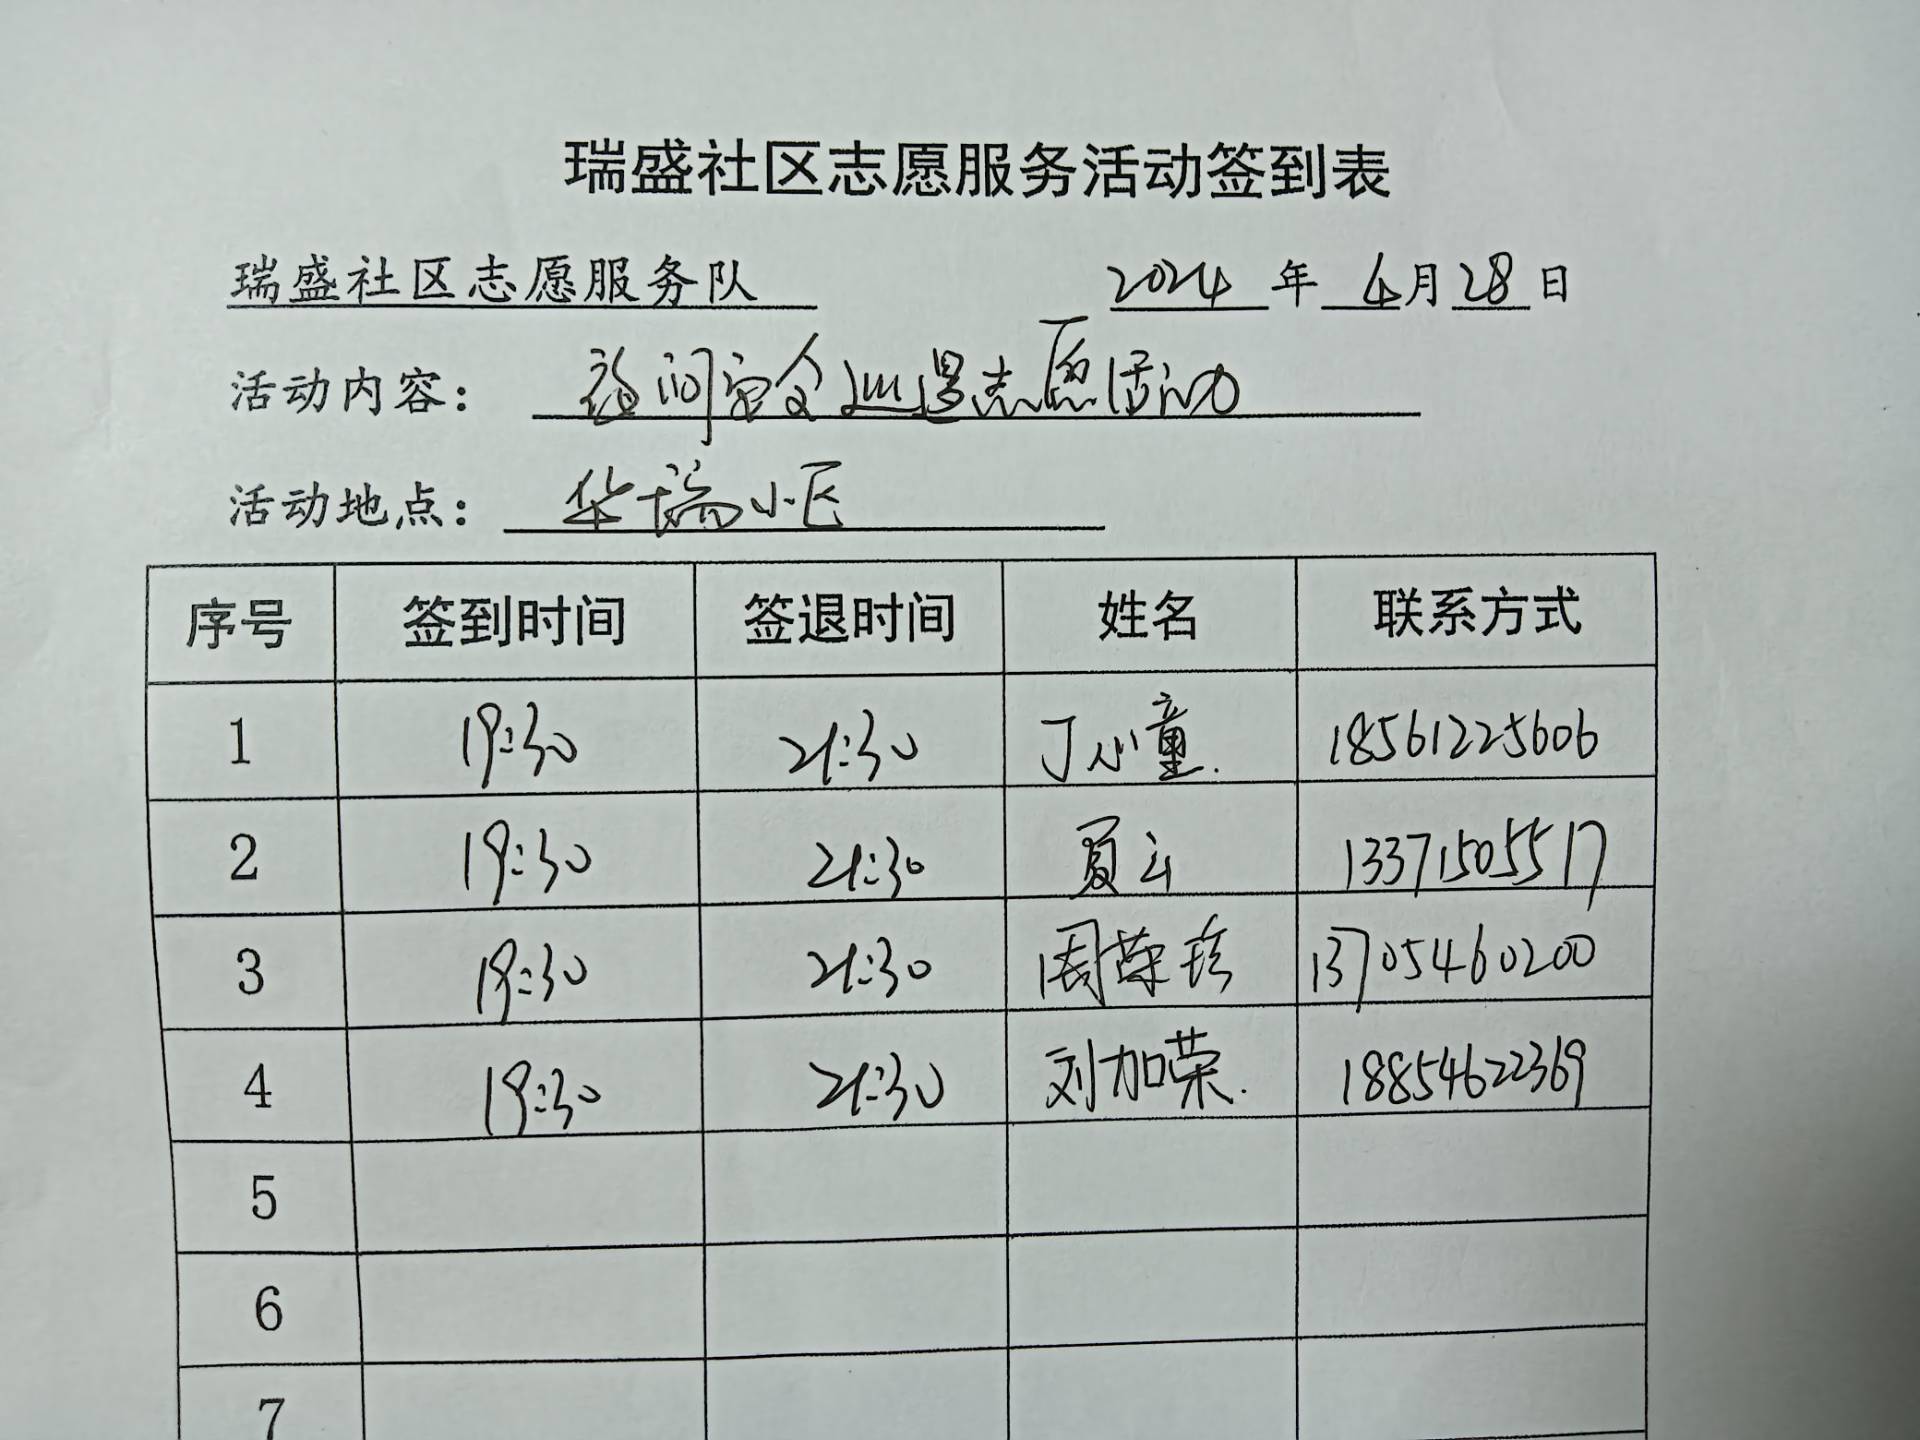 瑞盛社区志愿服务活动签到表
瑞盛社区志愿服务队 2024 年 4月28日
活动内容： 夜间安全巡逻志愿活动
活动地点： 华瑞小区
序号 签到时间 签退时间 姓名 联系方式
1 19:30 21:30 丁心童. 18561225606
2 19:30 21:30 夏云 13371505517
3 19:30 21:30 周荣珍 13705460200
4 19:30 21:30 刘加荣. 18854622369
5
6
7